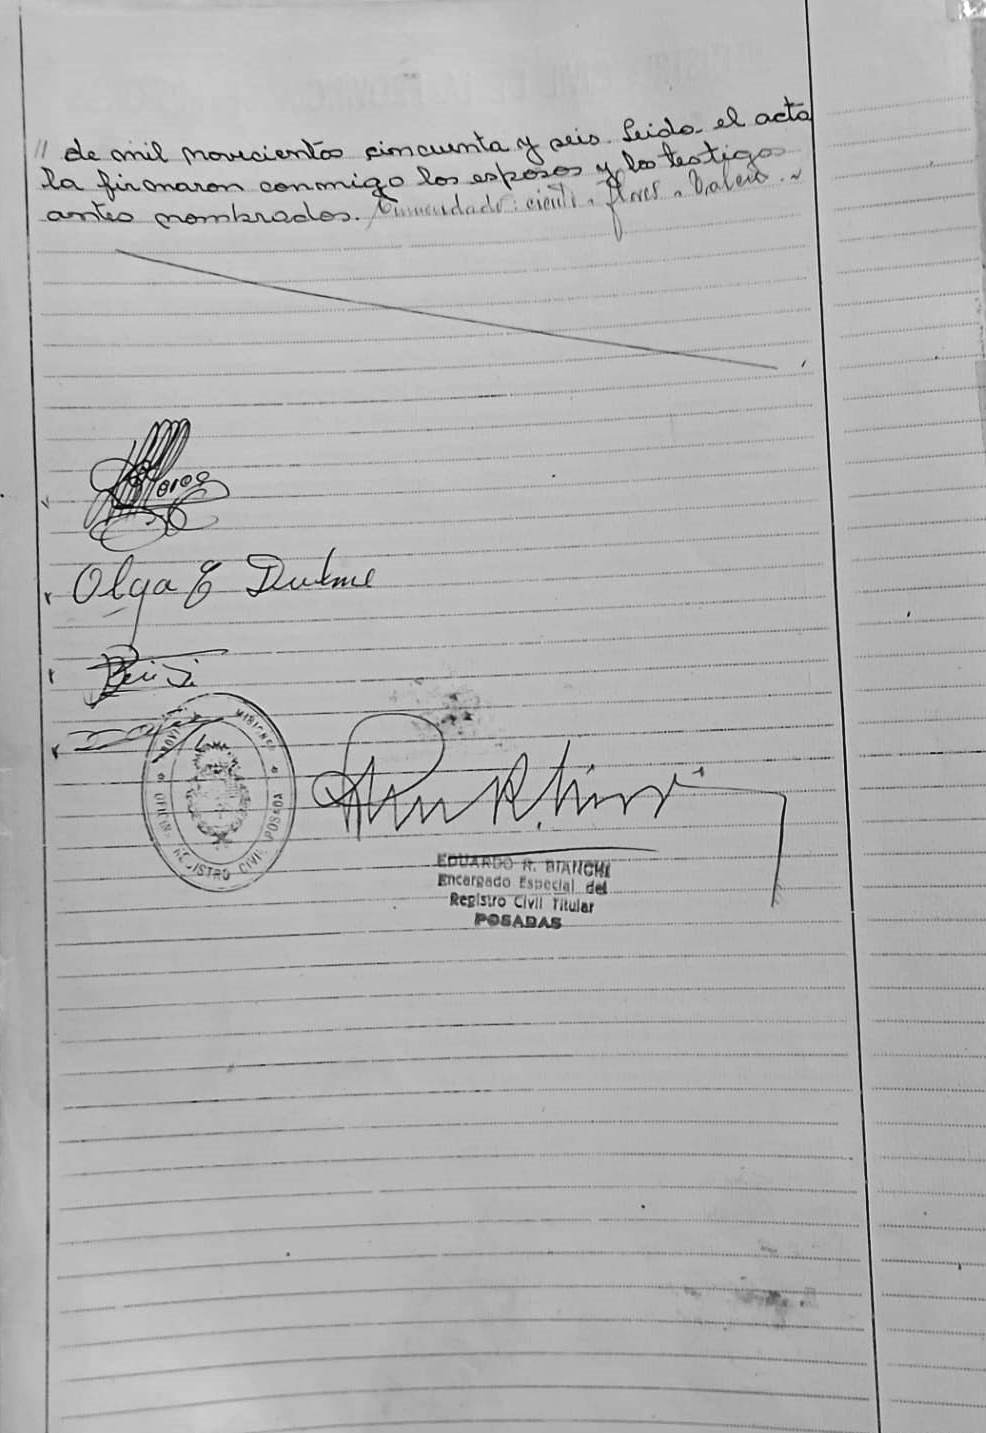 // de mil novecientos cincuenta y seis. Leida el acta
la firmaron conmigo los esposos y los testigos
antes nombrados. Enmendado: ciento. Flores.
Flores
Olga E
PROVINCIA MISIONES
OFICINA REGISTRO CIVIL POSADAS
EDUARDO R. BIANCHI
Encargado Especial del
Registro Civil Titular
POSADAS